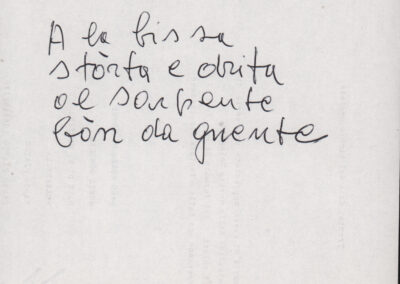 A la bissa
stòrta e drita
oe sarpente
bòn da gnente